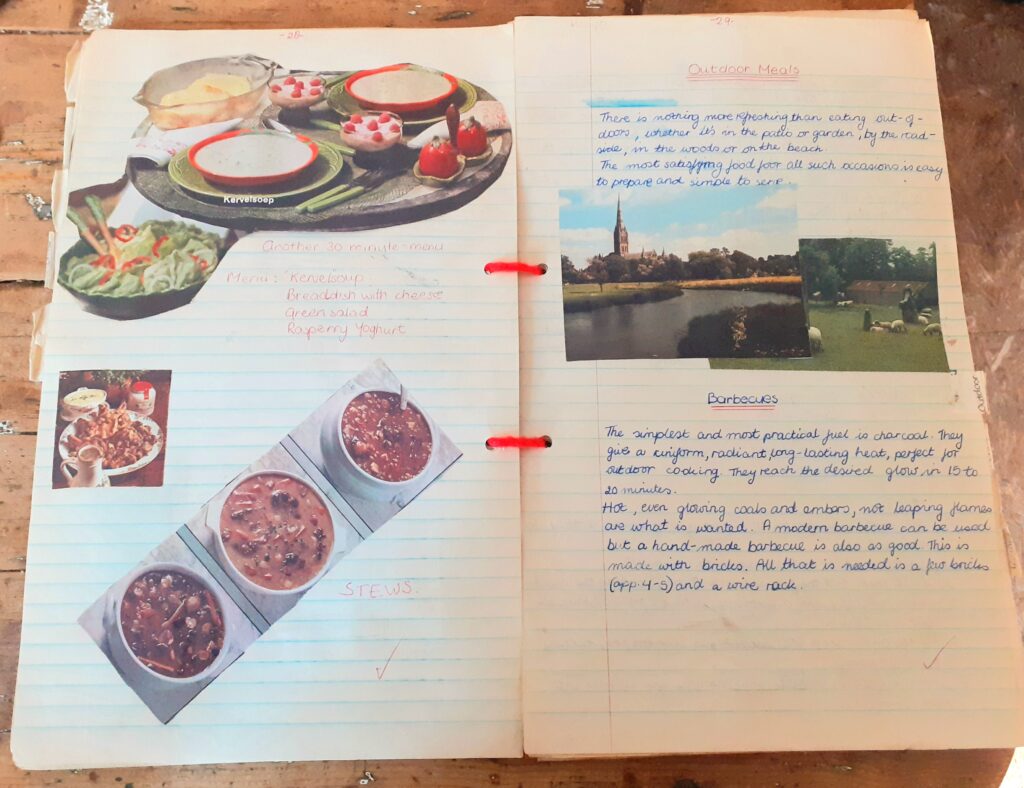 -28-
Kervelsoep
Another 30 minute-menu
Menu: Kervelsoup
Breaddish with cheese
Green salad
Rasperry Yoghurt
STEWS.
-29-
Outdoor Meals
There is nothing more refreshing than eating out-of-
doors, whether it's in the patio or garden, by the road-
side, in the woods or on the beach.
The most satisfying food for all such occasions is easy
to prepare and simple to serve
Barbecues
The simplest and most practical fuel is charcoal. They
give a uniform, radiant, long-lasting heat, perfect for
outdoor cooking. They reach the desired glow, in 15 to
20 minutes.
Hot, even glowing coals and embers, not leaping flames
are what is wanted. A modern barbecue can be used
but a hand-made barbecue is also as good. This is
made with bricks. All that is needed is a few bricks
(app. 4-5) and a wire rack.
Outdoor